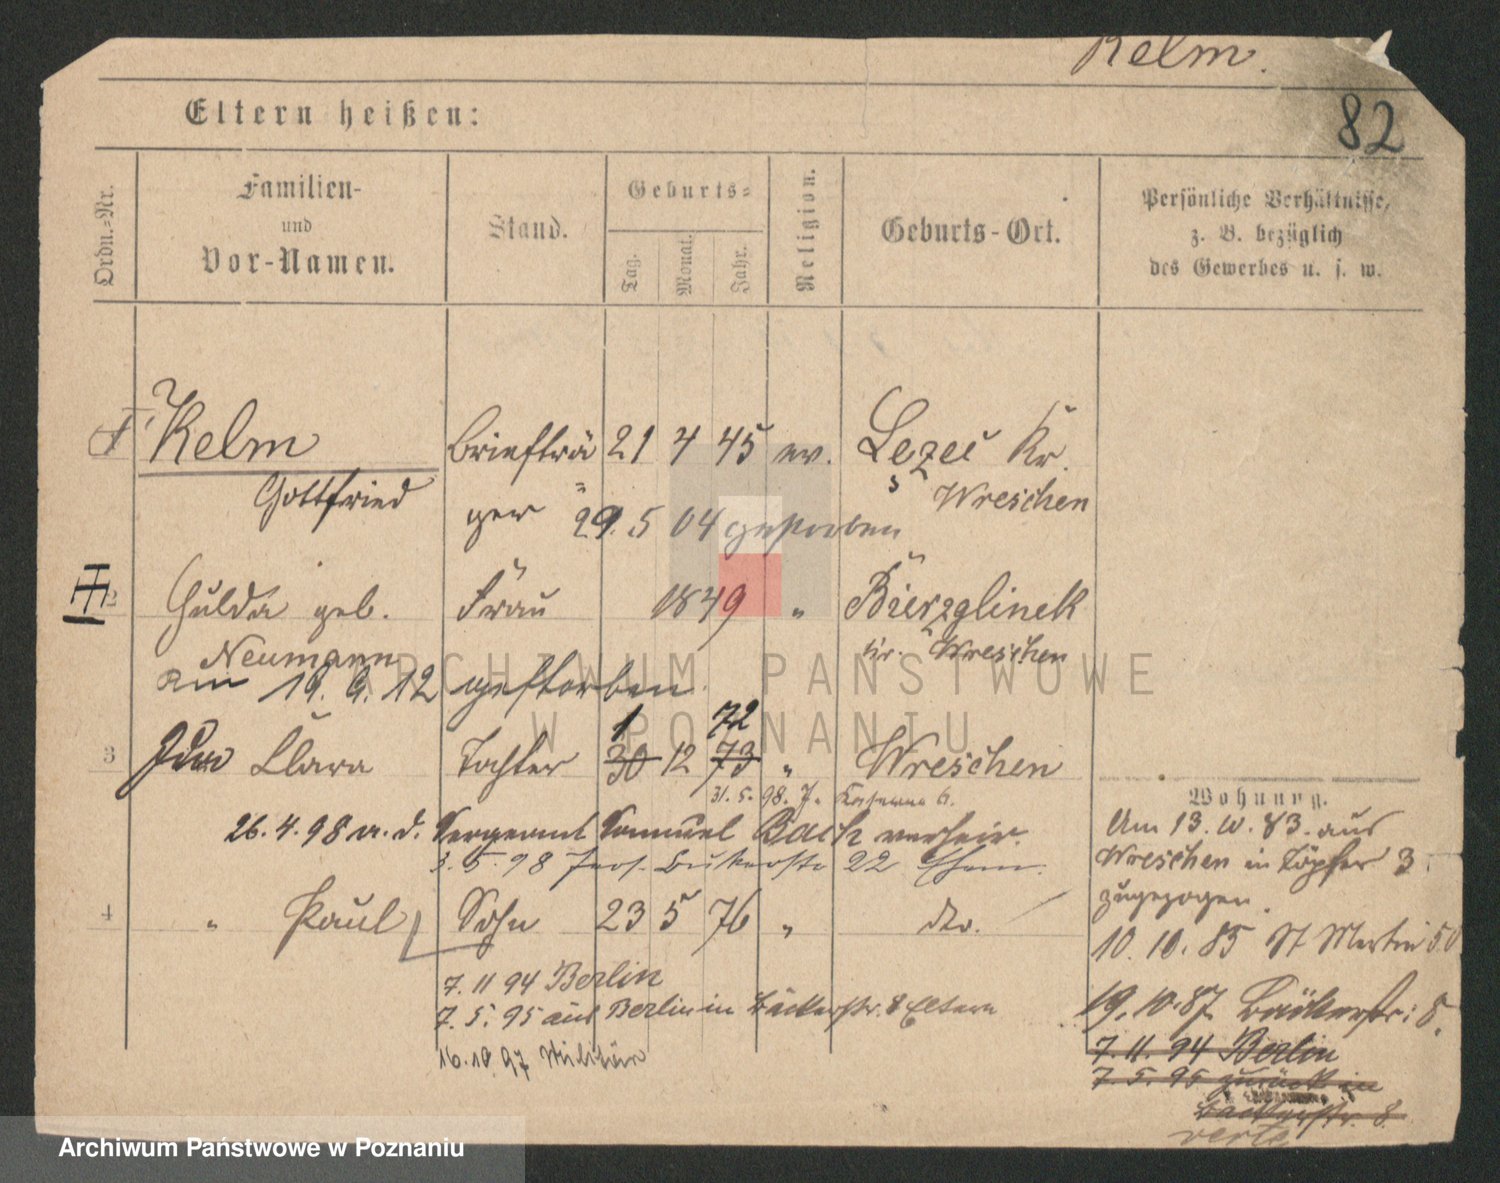 Kelm.
82
Eltern heißen:
Ordn.=Nr.
Familien-
und
Vor-Namen.
Stand.
Geburts=
Tag.
Monat.
Jahr.
Religion.
Geburts-Ort.
Persönliche Verhältnisse,
z. B. bezüglich
des Gewerbes u. s. w.
Kelm Briefträ 21 4 45 ev. Kr.
Gottfried ger Wreschen
29. 5 04 gestorben
2 Hulda geb. Frau 1849 " Bierzglinek
Neumann Kr. Wreschen
am 19. 9. 12 gestorben.
1 72
3 Clara Tochter 30 12 73 " Wreschen
31. 5. 98.
26. 4. 98 a. d. Sergeant Samuel Bach verheir.
3. 5. 98 22
4 " Paul Sohn 23 5 76 " dto.
7. 11 94 Berlin
7. 5. 95 aus Berlin in Bäckerstr. 8 Eltern
16. 10 97 Militär
Wohnung.
Am 13. 10. 83. aus
Wreschen in Töpfer 3
zugezogen.
10. 10. 85 St Martin 50
19. 10. 87 Bäckerstr: 8.
7. 11. 94 Berlin
7. 5. 95 zurück in
Bäckerstr. 8.
verte
ARCHIWUM PAŃSTWOWE
W POZNANIU
Archiwum Państwowe w Poznaniu